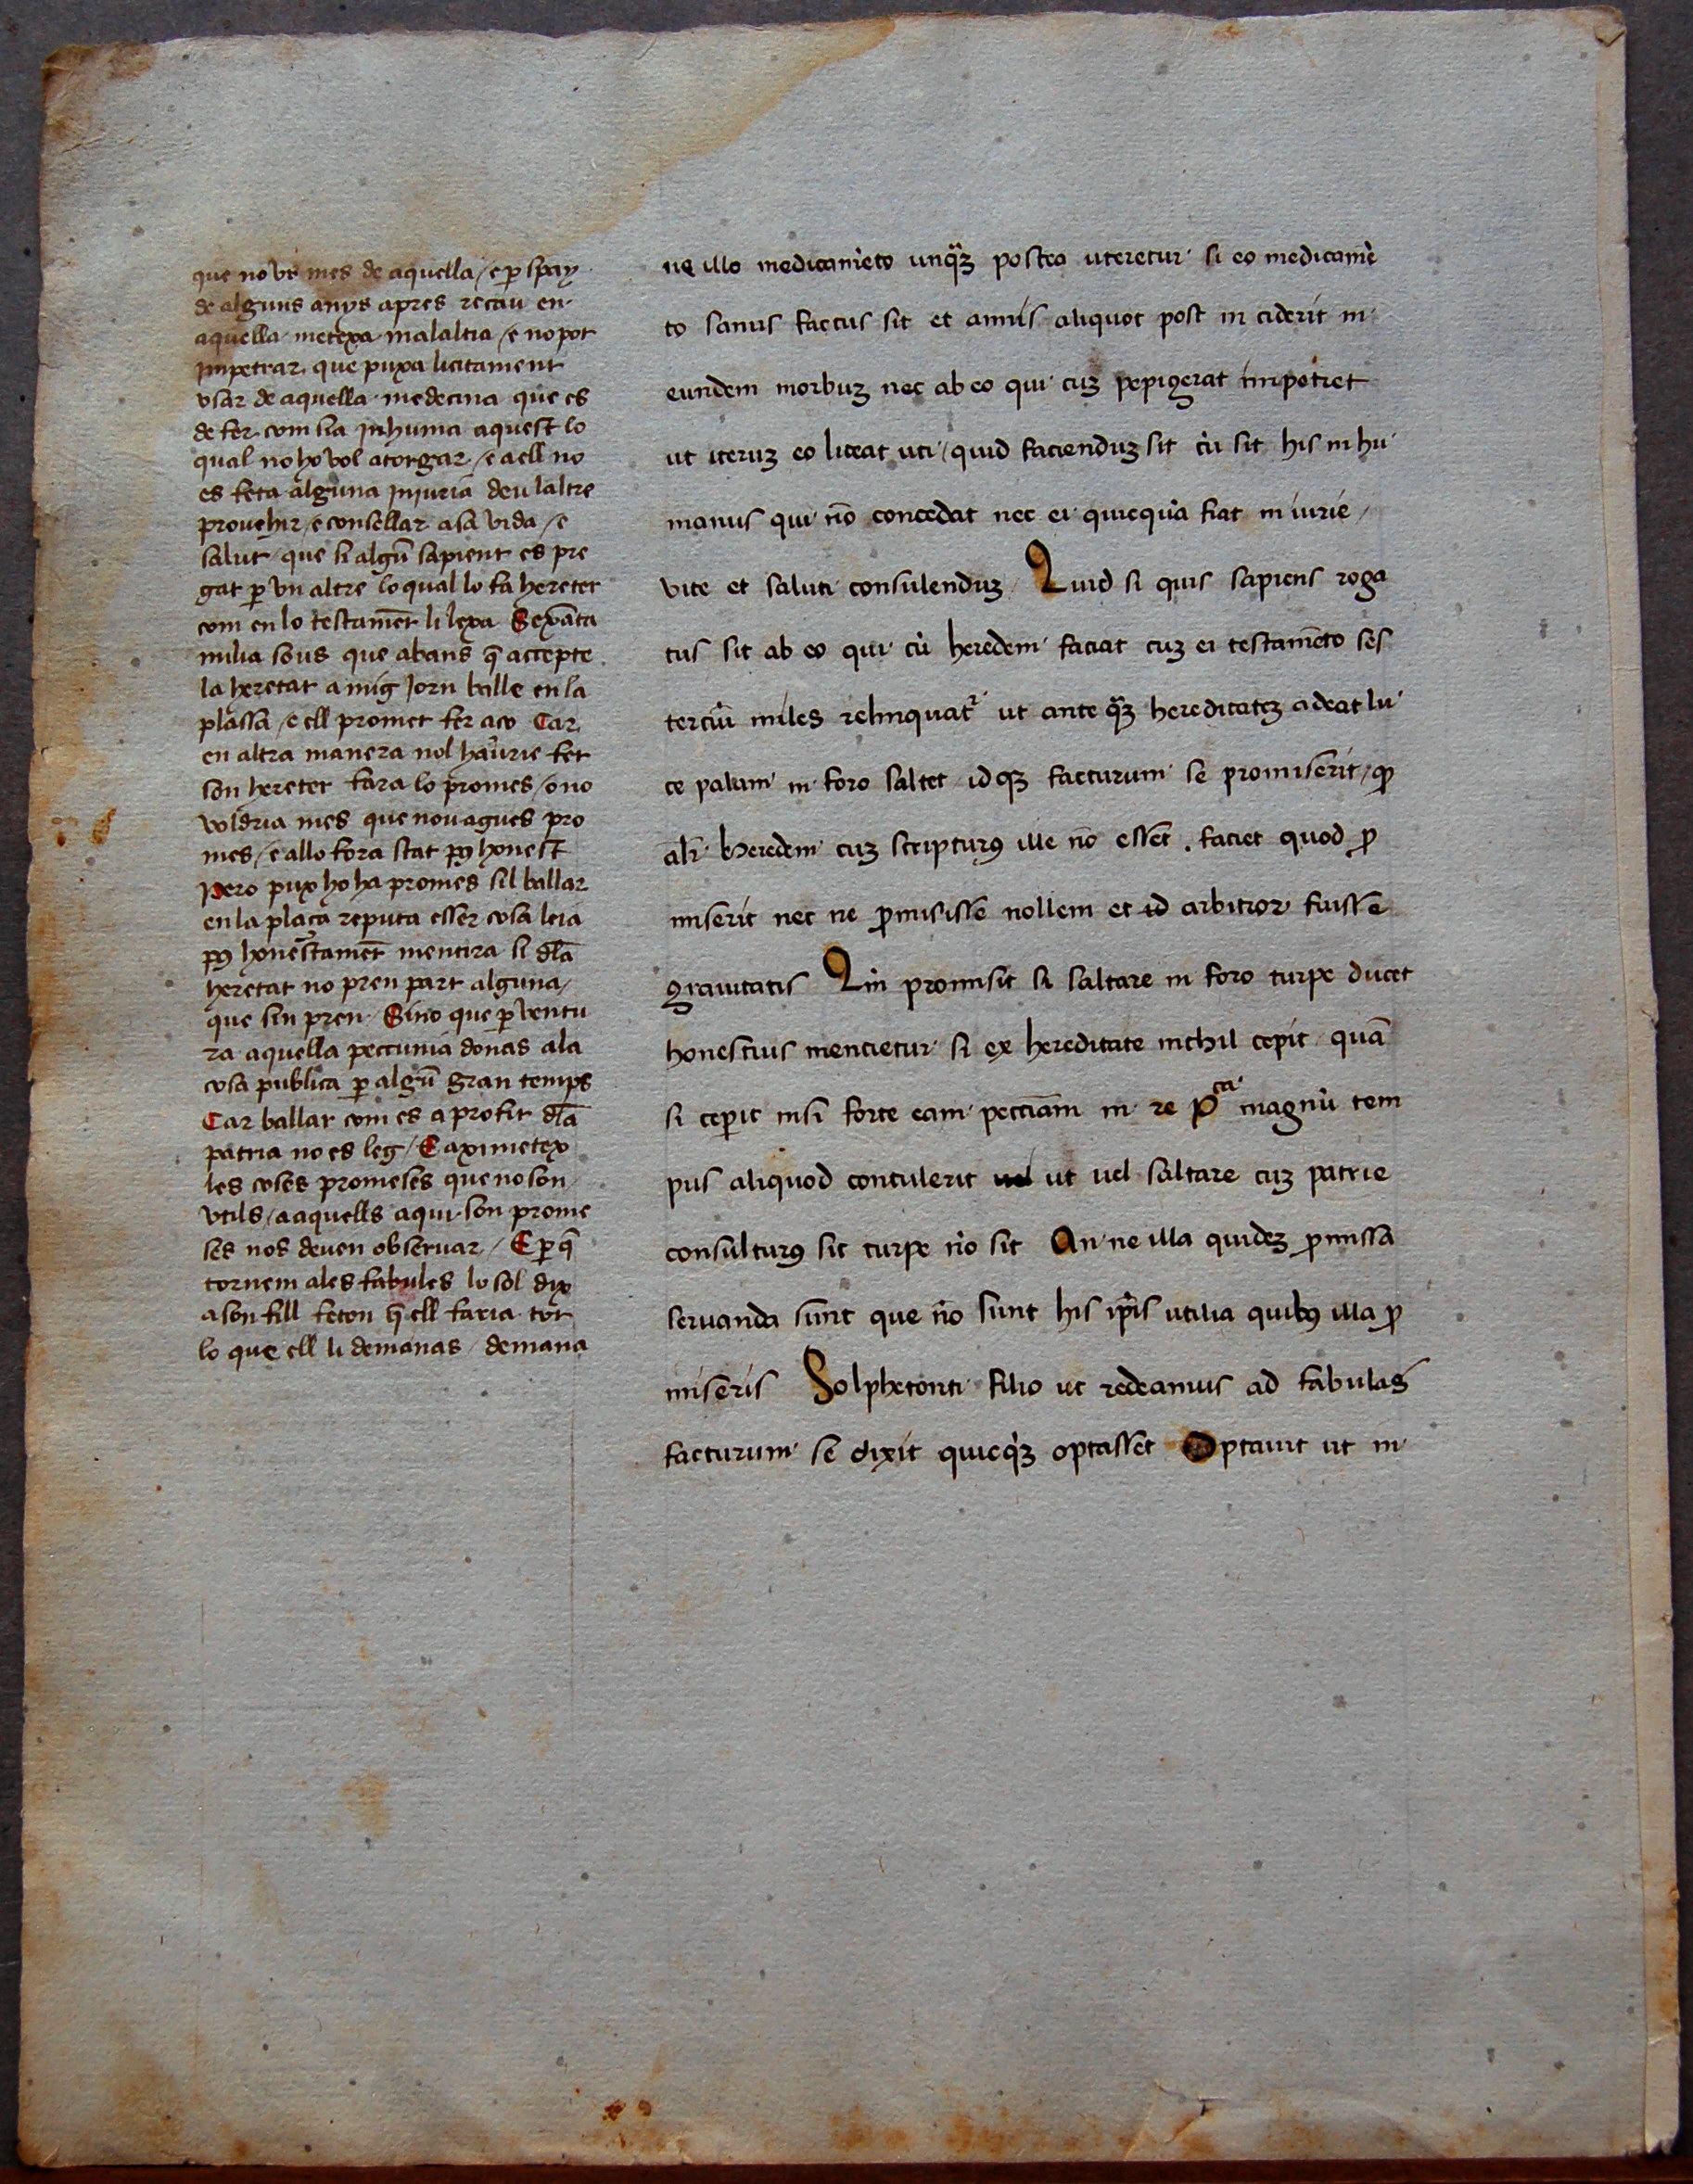 que no vs mes de aquella / e p̲ spay
de alguns anys apres recau en
aquella metexa malaltia / e no pot
jmpetrar que puxa licitament
vsar de aquella medecina que es
de fer com sia jnhuma aquest lo
qual no ho vol atorgar / e a ell no
es feta alguna jnjuria deu laltre
prouehir / e consellar a sa vida / e
salut / que si algũ sapient es pre
gat p̲ vn altre lo qual lo fa hereter
com en lo testamẽt li lexa Sexãta
milia sous que abans q̃ accepte
la heretat a mig jorn balle en la
plassa / e ell promet fer aço Car
en altra manera nol haurie fet
son hereter fara lo promes / o no
voldria mes que nou agues pro
mes / e allo fora stat pꝯ honest
Pero pux ho ha promes sil ballar
en la plaça reputa esser cosa leia
pꝯ honestamẽt mentira si dla
heretat no pren part alguna /
que sin pren Sino que p̲ ventu
ra aquella peccunia donas ala
cosa publica p̲ algũ gran temps
Car ballar com es a profit dla
patria no es leg / E aximetex
les coses promeses que no son
vtils / a aquells a qui son prome
ses nos deuen obseruar / E p̲ q̃
tornem ales fabules lo sol dix
a son fill feton q̃ ell faria tot
lo que ell li demanas / demana
ne illo medicamẽto unqȝ postea uteretur si eo medicamẽ
to sanus factus sit et annis aliquot post in ciderit in
eundem morbuȝ nec ab eo qui cuȝ pepigerat impetret
ut iteruȝ eo liceat uti / quid faciendȝ sit cũ sit his in hu
manus qui nõ concedat nec ei quicquã fiat in iurie /
vite et saluti consulenduȝ / Quid si quis sapiens roga
tus sit ab eo qui cũ heredem faciat cuȝ ei testamẽto ses
terciũ miles relinquat͛ ut ante qȝ hereditateȝ adeat lu
ce palam in foro saltet idqȝ facturum se promiserit / qꝫ
alr̃ heredem cuȝ scripturꝯ ille nõ essẽt . faciet quod ꝓ
miserit nec ne ꝓmisisse nollem et id arbitror fuisse
grauitatis Qm̃ promisit si saltare in foro turpe ducet
honestius mencietur si ex hereditate nichil cepit quã
si cep̲it nisi forte eam pecciam in re pᶜᵃ magnũ tem
pus aliquod contulerit ut uel saltare cuȝ patrie
consulturꝯ sit turpe nõ sit An ne illa quideȝ ꝓmissa
seruanda sunt que nõ sunt his ip̃is utilia quibꝯ illa ꝓ
miseris Sol phetonti filio ut redeamus ad fabulas
facturum se dixit quicqȝ optasset Optauit ut in